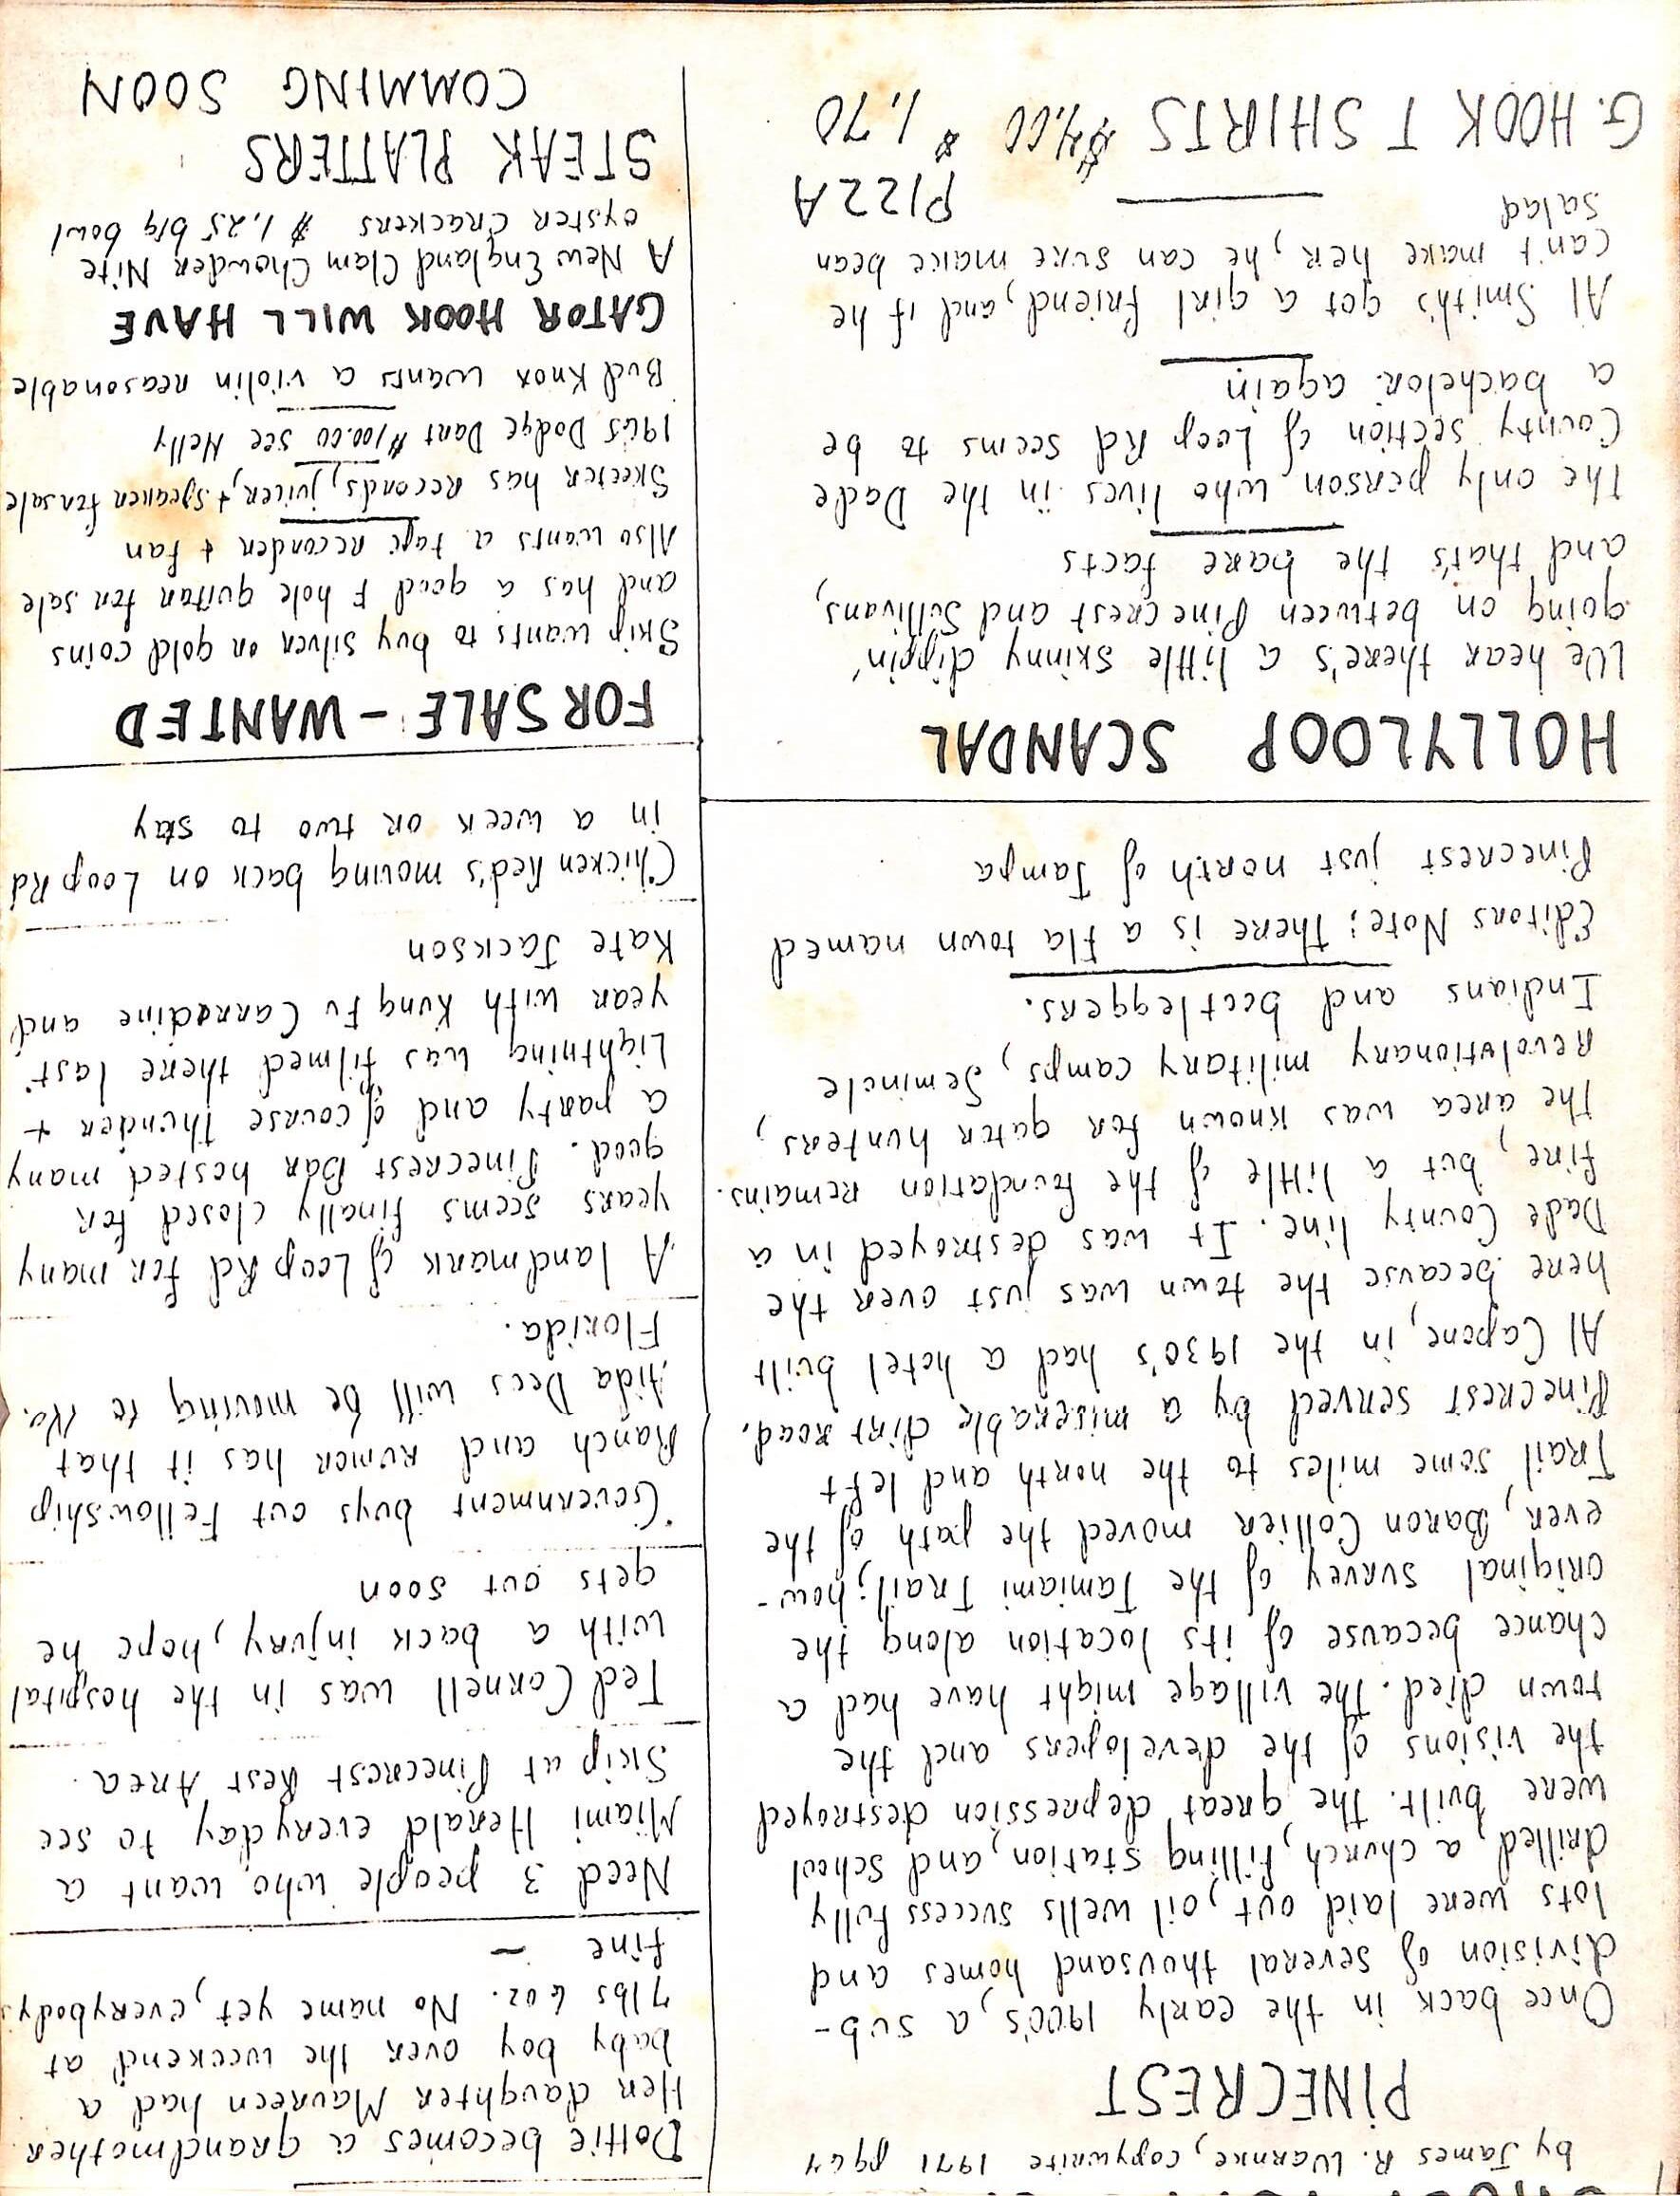 by James R. Warnke, copywrite 1971 pg64
PINECREST
Once back in the early 1900's, a sub-
division of several thousand homes and
lots were laid out, oil wells successfully
drilled, a church, filling station, and school
were built. The great depression destroyed
the visions of the developers and the
town died. The village might have had a
chance because of its location along the
original survey of the Tamiami Trail; how-
ever, Baron Collier moved the path of the
Trail some miles to the north and left
Pinecrest served by a miserable dirt road.
Al Capone, in the 1930's had a hotel built
here because the town was just over the
Dade County line. It was destroyed in a
fire, but a little of the foundation remains.
The area was known for gator hunters,
revolutionary military camps, Seminole
Indians and bootleggers.
Editors Note; There is a Fla town named
Pinecrest just north of Tampa
HOLLYLOOP SCANDAL
We hear there's a little skinny dippin'
going on between Pinecrest and Sullivans,
and that's the bare facts
The only person who lives in the Dade
County section of Loop Rd seems to be
a bachelor again
Al Smith's got a girl friend, and if he
can't make her, he can sure make bean
salad
PIZZA
G. HOOK T SHIRTS $4.00 $1.70
Dottie becomes a grandmother
Her daughter Maureen had a
baby boy over the weekend at
7 lbs 6 oz. No name yet, everybody's
fine —
Need 3 people who want a
Miami Herald everyday to see
Skip at Pinecrest Rest Area.
Ted Cornell was in the hospital
with a back injury, hope he
gets out soon
Government buys out Fellowship
Ranch and rumor has it that
Aida Dees will be moving to No.
Florida.
A landmark of Loop Rd for many
years seems finally closed for
good. Pinecrest Bar hosted many
a party and of course Thunder +
Lightning was filmed there last
year with Kung Fu Carradine and
Kate Jackson
Chicken Red's moving back on Loop Rd
in a week or two to stay
FOR SALE - WANTED
Skip wants to buy silver or gold coins
and has a good F hole guitar for sale
Also wants a tape recorder + fan
Skeeter has records, juicer, + speaker for sale
1965 Dodge Dart $100.00 see Nelly
Bud Knox wants a violin reasonable
GATOR HOOK WILL HAVE
A New England Clam Chowder Nite
oyster crackers $1.25 big bowl
STEAK PLATTERS
COMMING SOON